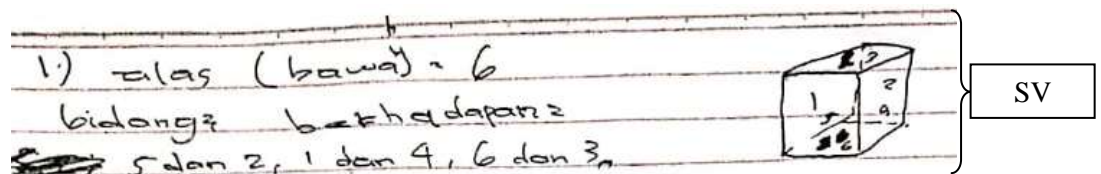 1.) alas (bawah) = 6
bidang² berhadapan =
5 dan 2, 1 dan 4, 6 dan 3,,
3
1
2
5
4
6
SV